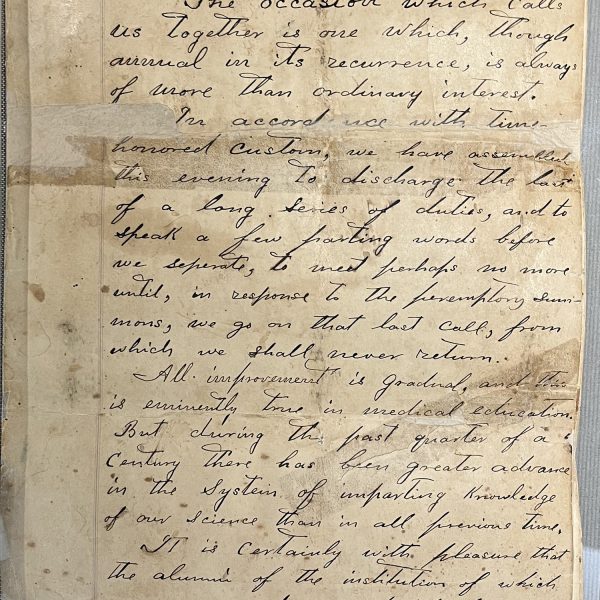 The occasion which calls
us together is one which, though
annual in its recurrence, is always
of more than ordinary interest.
In accord nce with time-
honored custom, we have assembled
this evening to discharge the last
of a long series of duties, and to
speak a few parting words before
we seperate, to meet perhaps no more
until, in response to the peremptory sum-
mons, we go on that last call, from
which we shall never return.
All improvement is gradual, and this
is eminently true in medical education.
But during the past quarter of a
Century there has been greater advance
in the system of imparting Knowledge
of our science than in all previous time.
It is certainly with pleasure that
the alumni of the institution of which